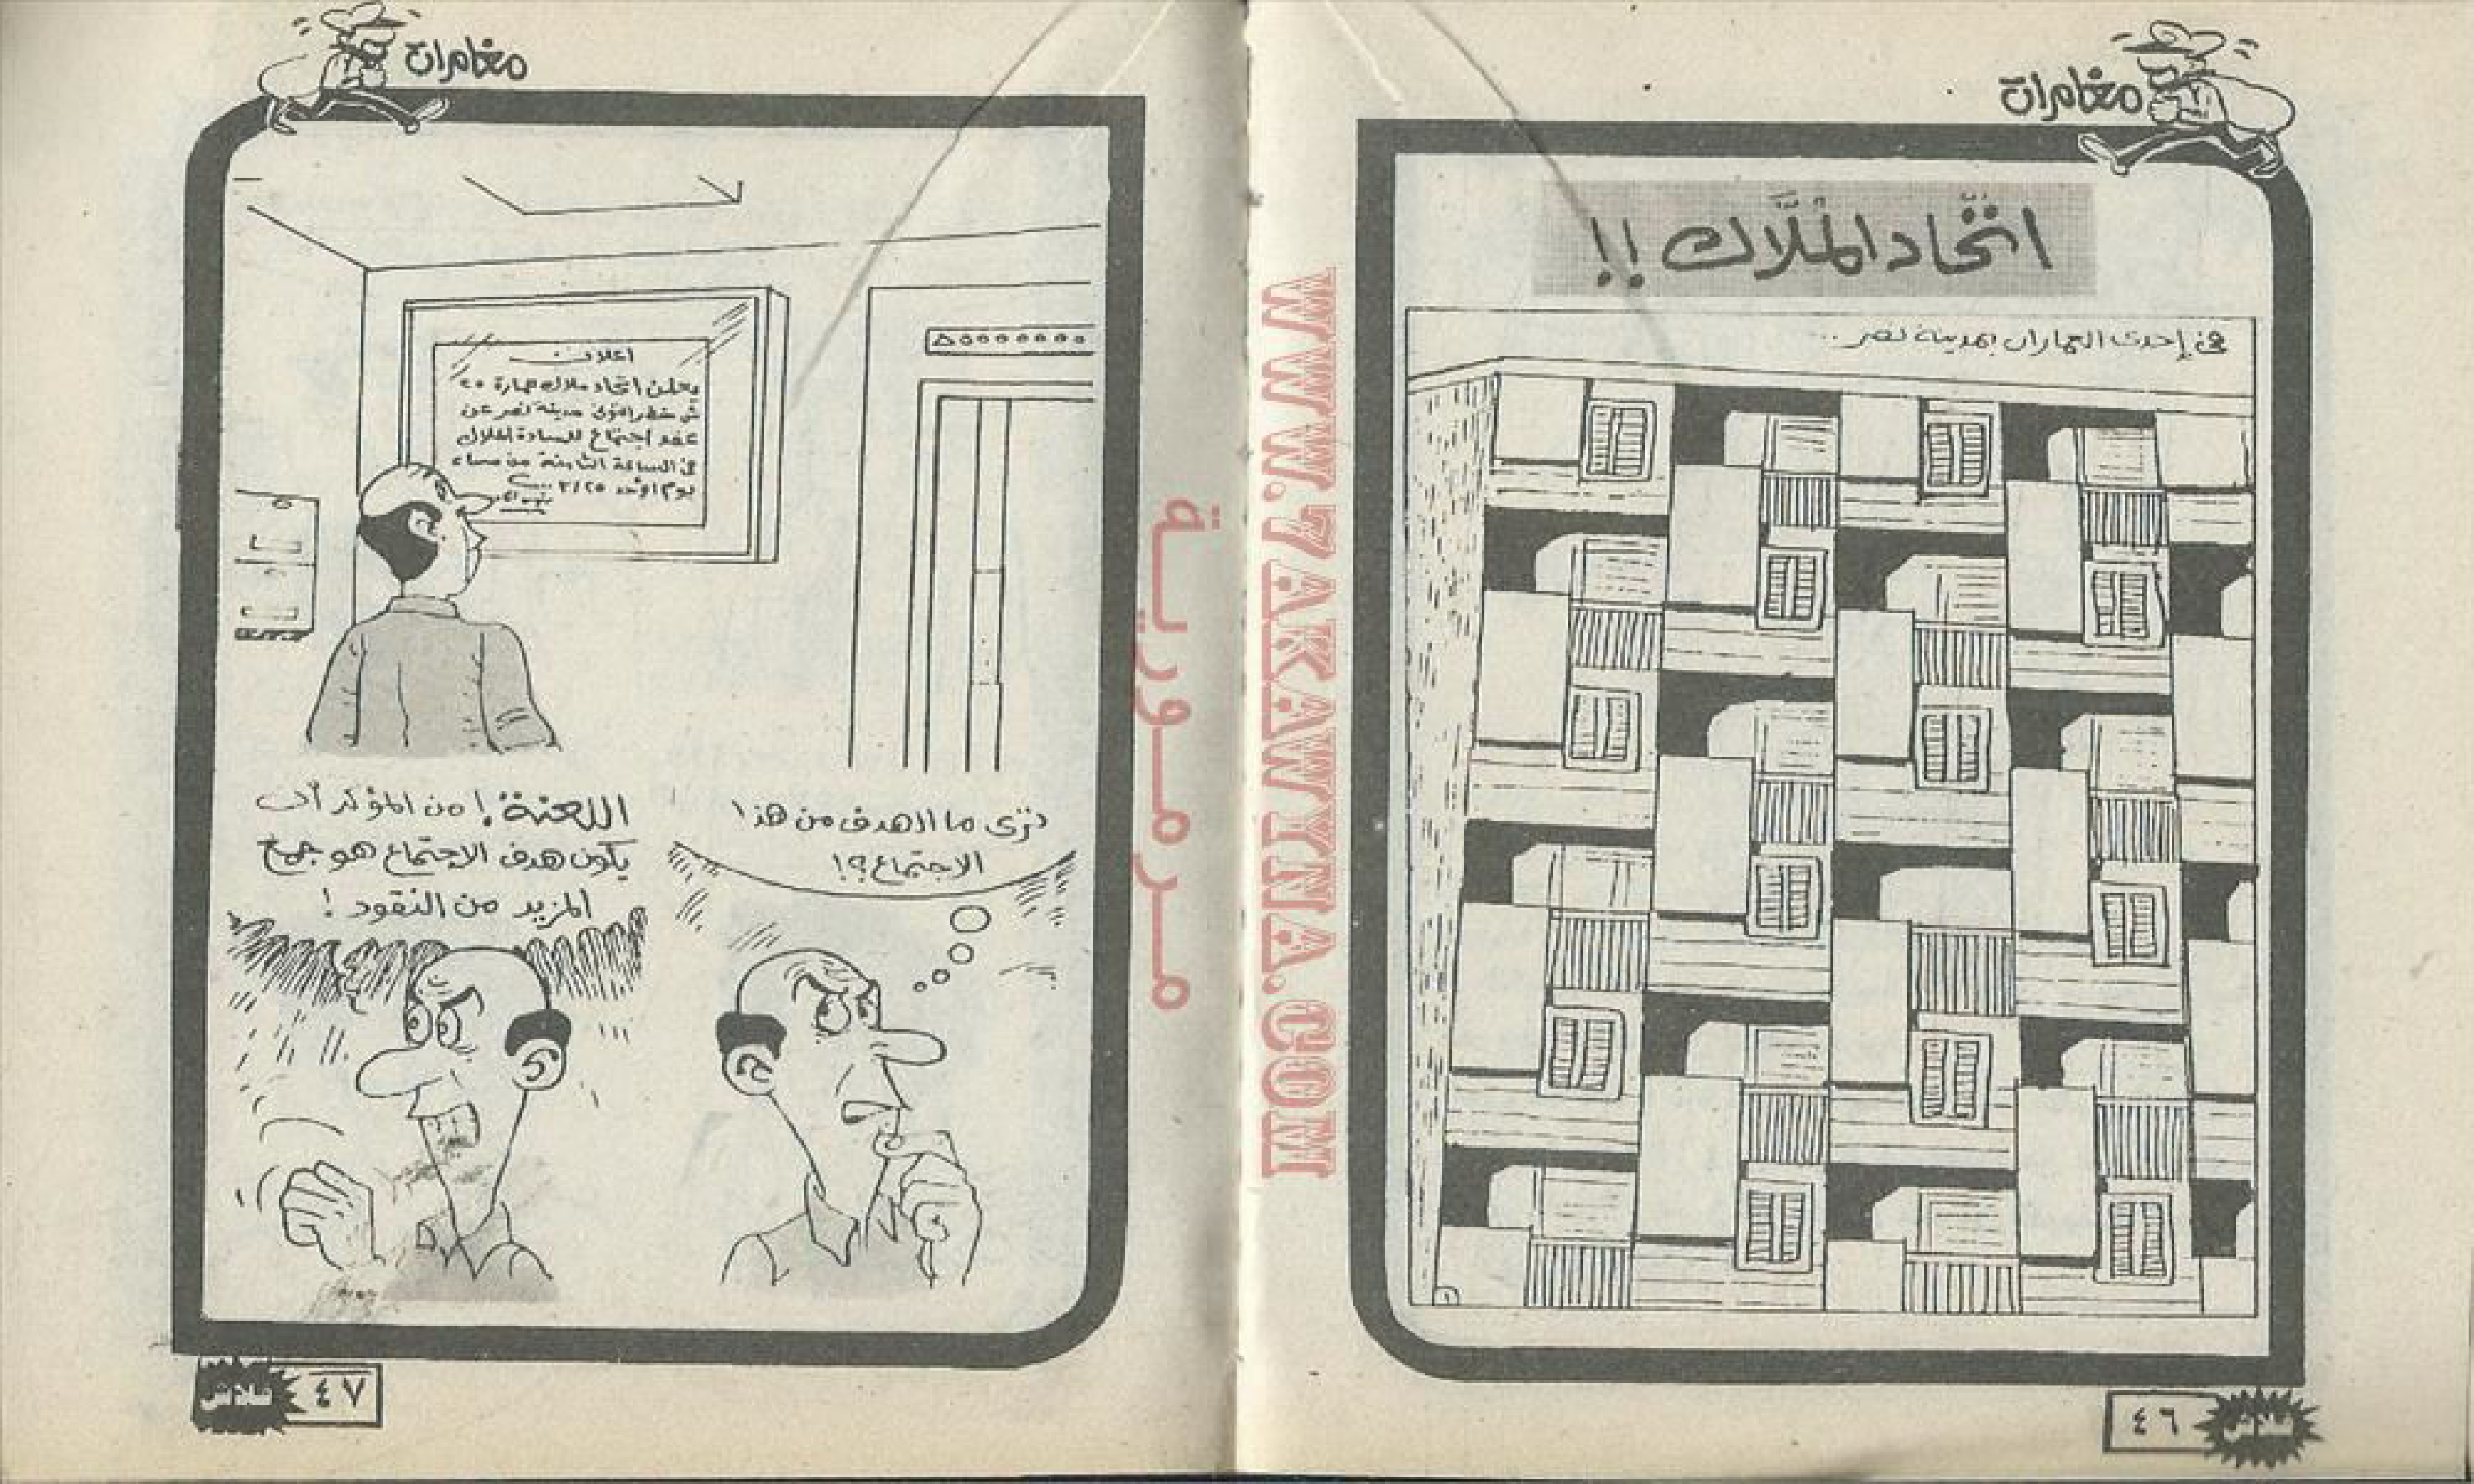 مغامرات
اتحاد المُلَّاك !!
فى إحدى العمارات بمدينة نصر ...
٤٦
فلاش
مغامرات
اعلان
يعلن اتحاد ملاك عمارة ٢٥
ش خضر التونى مدينة نصر عن
عقد اجتماع للسادة الملاك
فى الساعة الثامنة من مساء
يوم الأحد ٣/٢٥
تُرى ما الهدف من هذا
الاجتماع؟!
اللعنة ! من المؤكد أن
يكون هدف الاجتماع هو جمع
المزيد من النقود !
فلاش
٤٧
مرمورية
WWW.7AKAWINA.COM